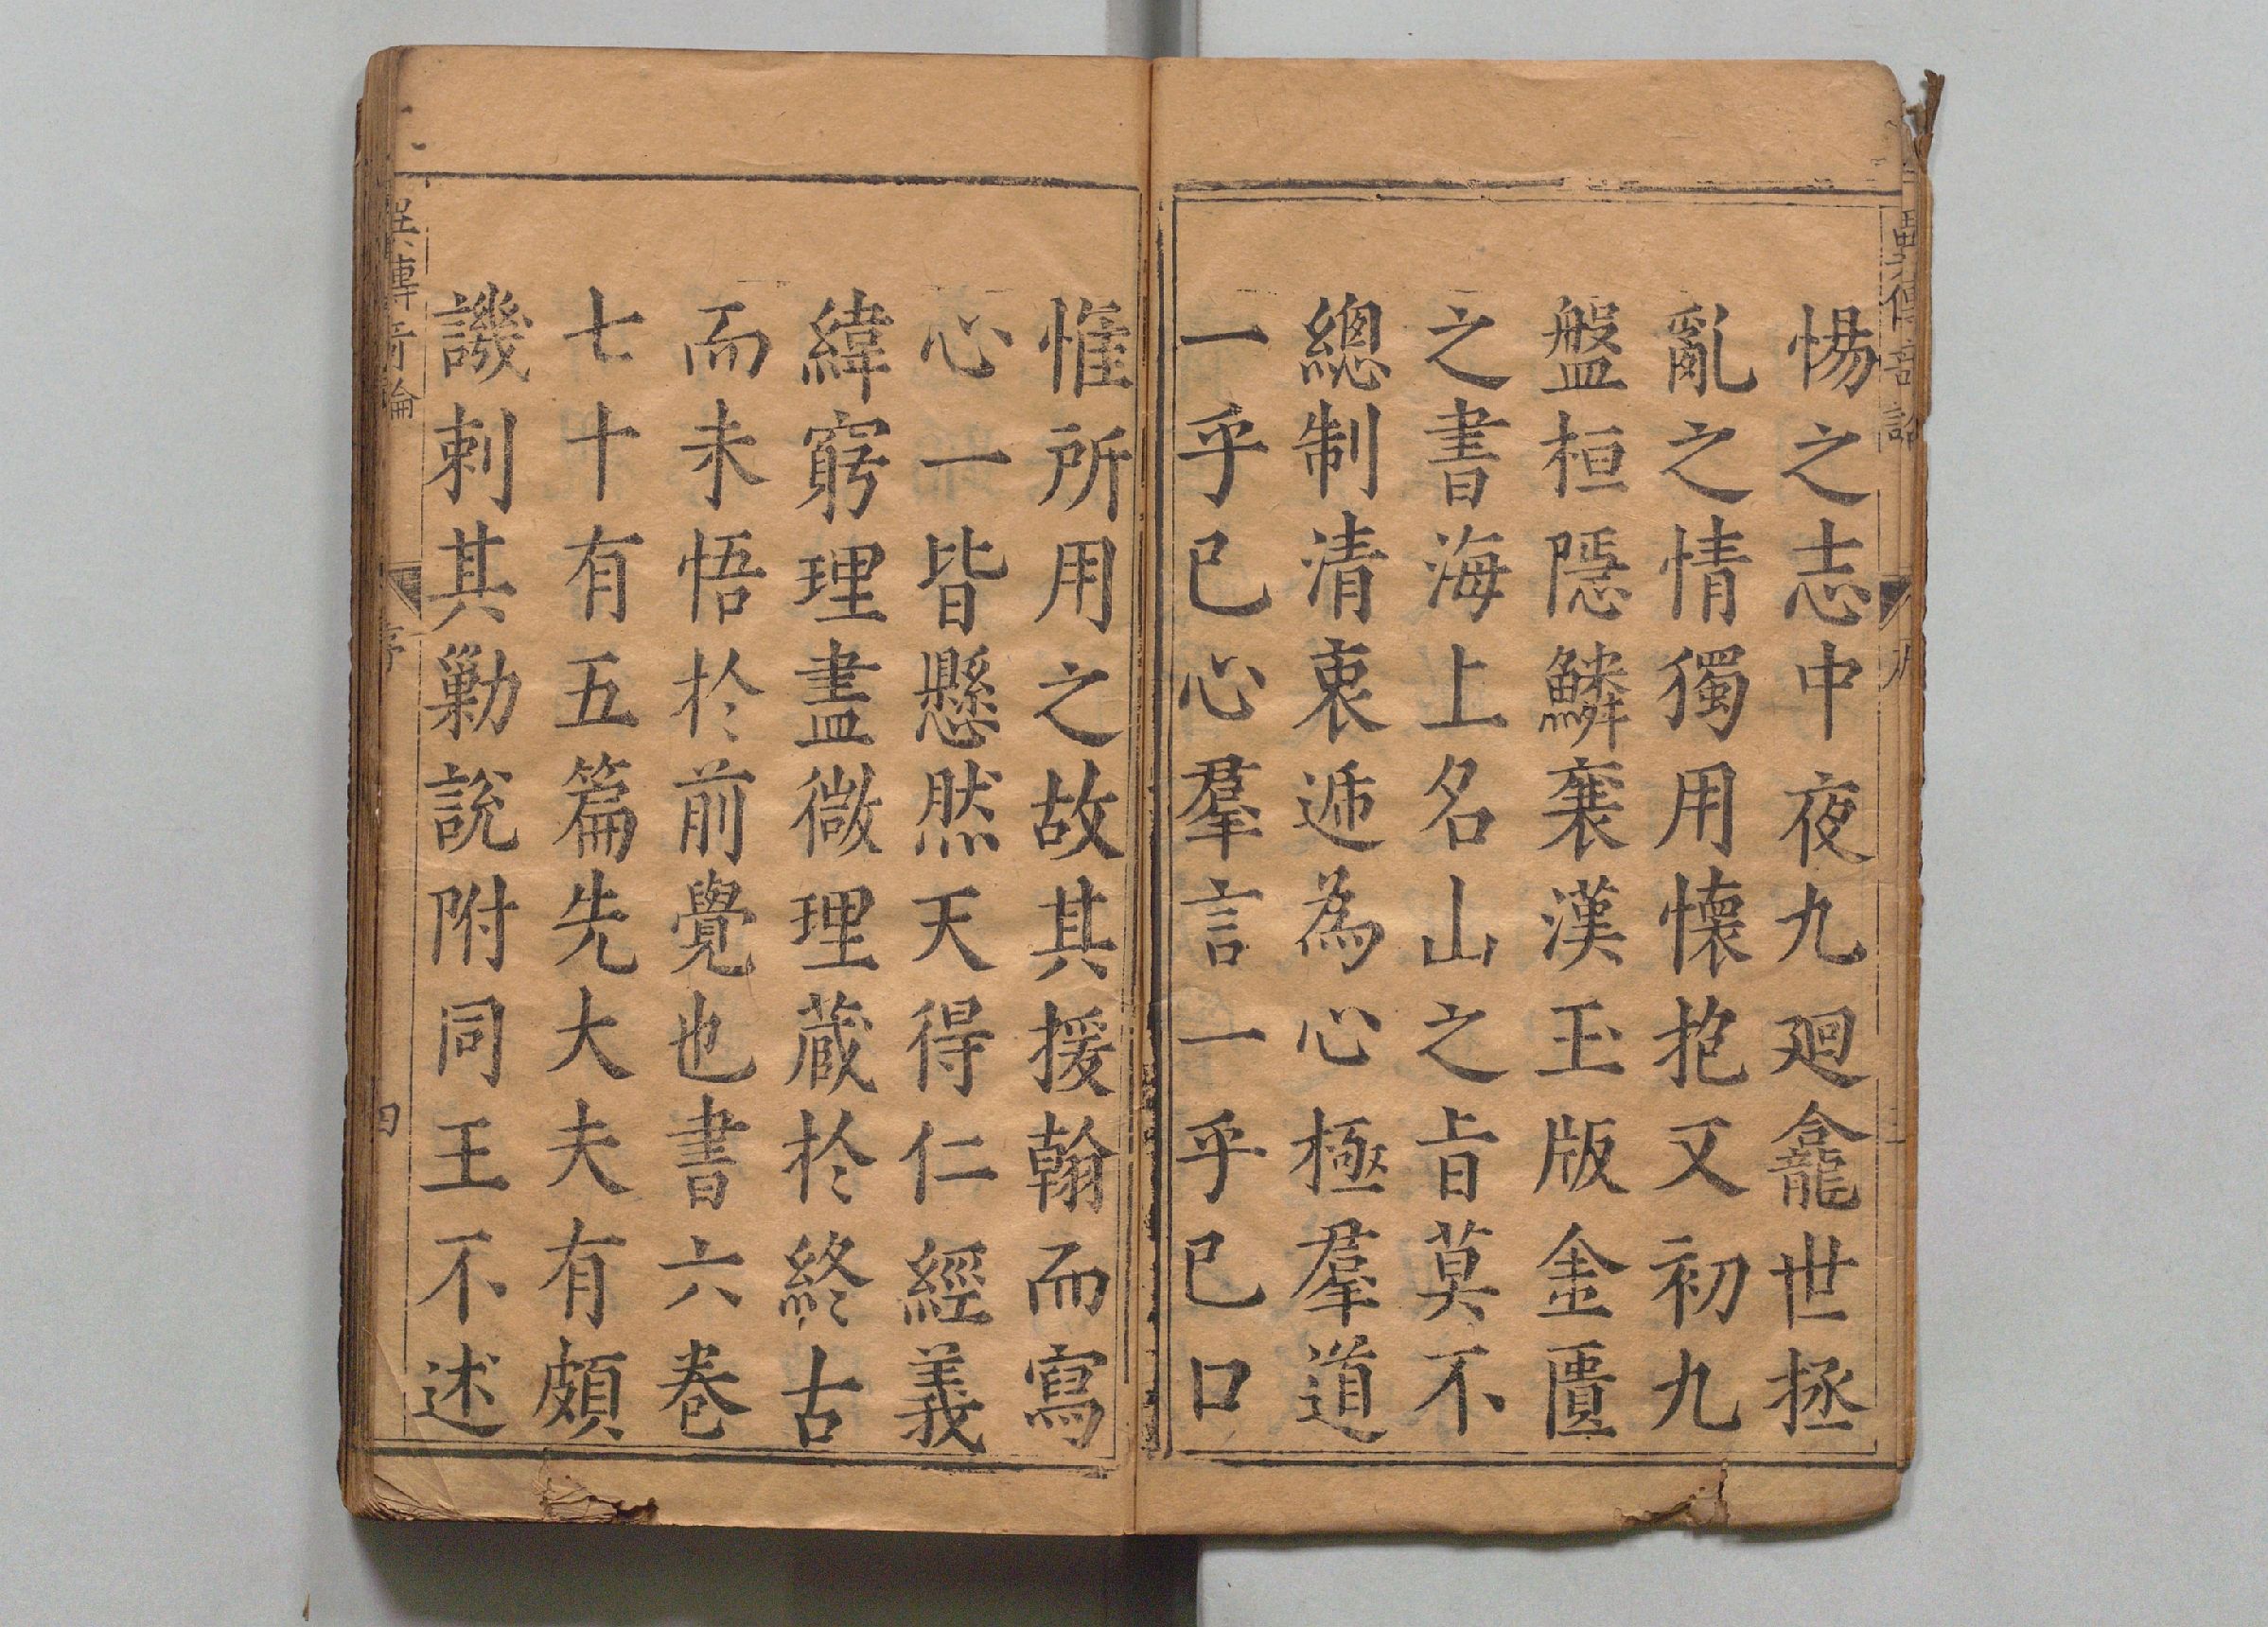 惕之志中夜九廻龕世拯
亂之情獨用懷抱又初九
盤桓隱鱗裹漢玉版金匱
之書海上名山之旨莫不
總制清衷遞為心極羣道
一乎已心羣言一乎已口
惟所用之故其援翰而寫
心一皆懸然天得仁經義
緯窮理盡微理蔵於終古
而未悟於前覺也書六卷
七十有五篇先大夫有頗
譏刺其勦說附同王不述
序
四